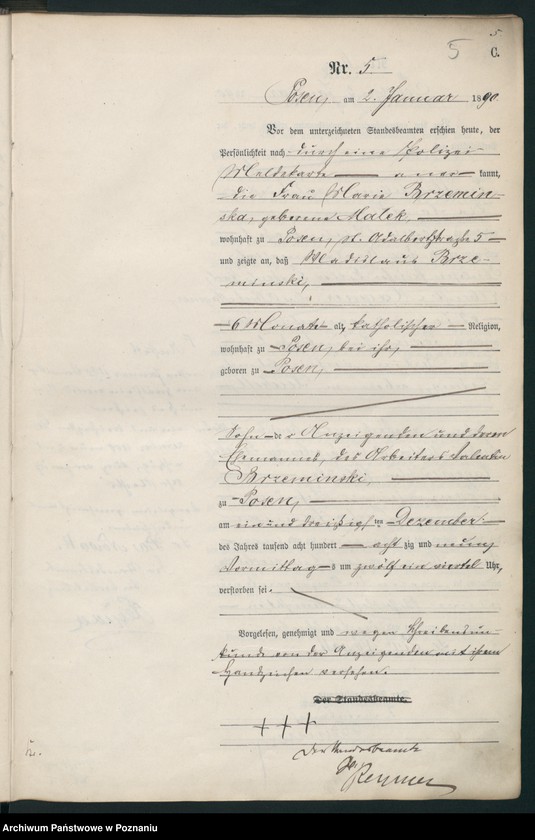 5.
5 C.
Nr. 5.
Posen, am 2. Januar 1890.
Vor dem unterzeichneten Standesbeamten erschien heute, der
Persönlichkeit nach durch eine Polizei
Meldekarte aner kannt,
die Frau Marie Brzemin-
ska, geborene Malek,
wohnhaft zu Posen, St. Adalbertstraße 5
und zeigte an, daß Wladislaus Brze-
minski,
6 Monate alt, katholischer Religion,
wohnhaft zu Posen, bei ihr,
geboren zu Posen,
Sohn der Anzeigenden und deren
Ehemannes, des Arbeiters
Brzeminski,
zu Posen,
am ein und dreißigsten Dezember
des Jahres tausend acht hundert acht zig und neun
Vormittags um zwölf ein viertel Uhr,
verstorben sei.
Vorgelesen, genehmigt und wegen Schreibensun-
kunde von der Anzeigenden mit ihrem
Handzeichen versehen.
Der Standesbeamte.
+++
Der Standesbeamte
5.
Archiwum Państwowe w Poznaniu